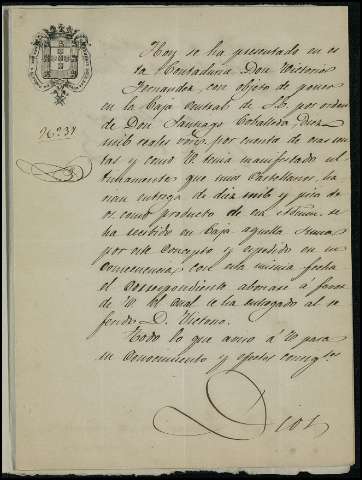 Hoy se ha presentado en es
ta Contaduria Don Victorio
Fernandez con objeto de poner
en la Caja Central de S. por orden
de Don Santiago Caballero, Diez
mil reales von, por cuenta de esas ren
tas y como V. tenia manifestado ul
timamente que mos Castellanos, ha
cian entrega de diez mil y pico de
como producto de su Admon. se
ha vertido en Caja aquella suma
por este concepto y expedido en su
consecuencia, con esta misma fecha
el correspondiente abonaré á favor
de V. El cual se ha entregado al re
ferido D. Victorio.
Todo lo que aviso á V. para
su conocimiento y efectos consigtes.
Dios